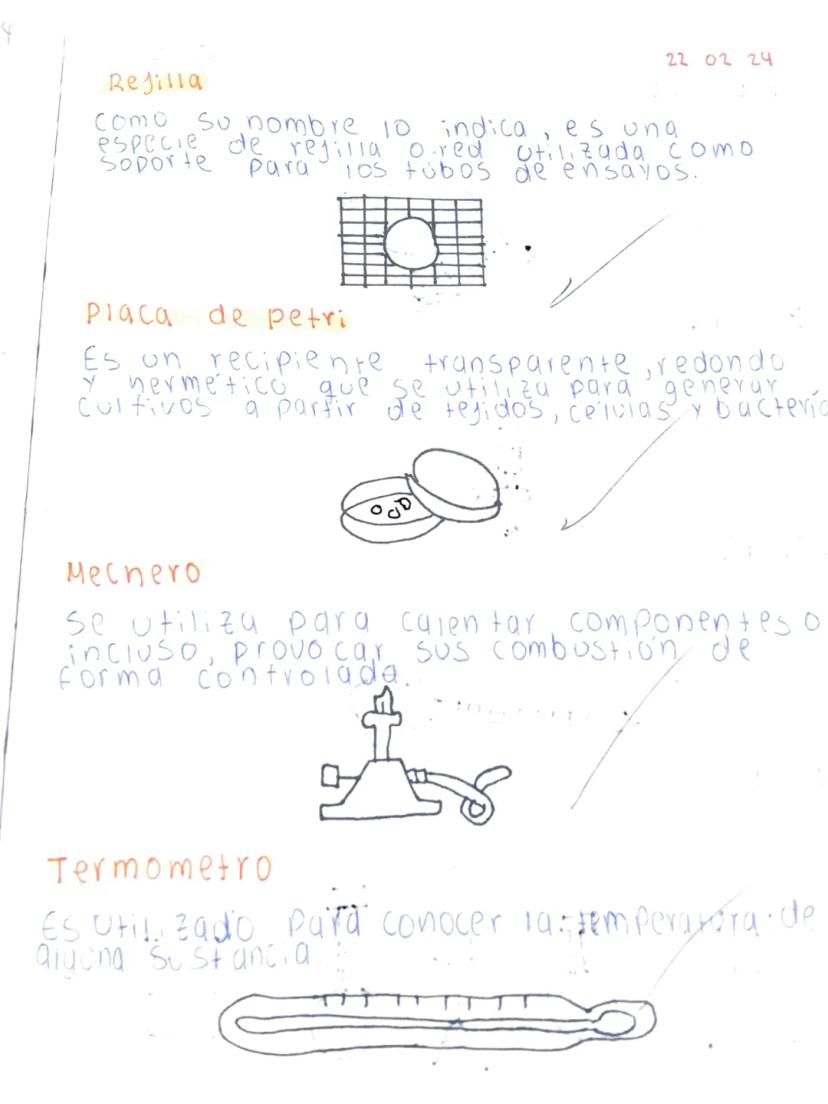 22 02 24
Rejilla
como su nombre lo indica, es una
especie de rejilla o red utilizada como
soporte para los tubos de ensayos.
Placa de petri
Es un recipiente transparente, redondo
y hermético que se utiliza para generar
cultivos a partir de tejidos, células y bacteria
Mechero
se utiliza para calentar componentes o
incluso, provocar sus combustión de
forma controlada.
Termometro
Es utilizado para conocer la temperatura de
alguna sustancia